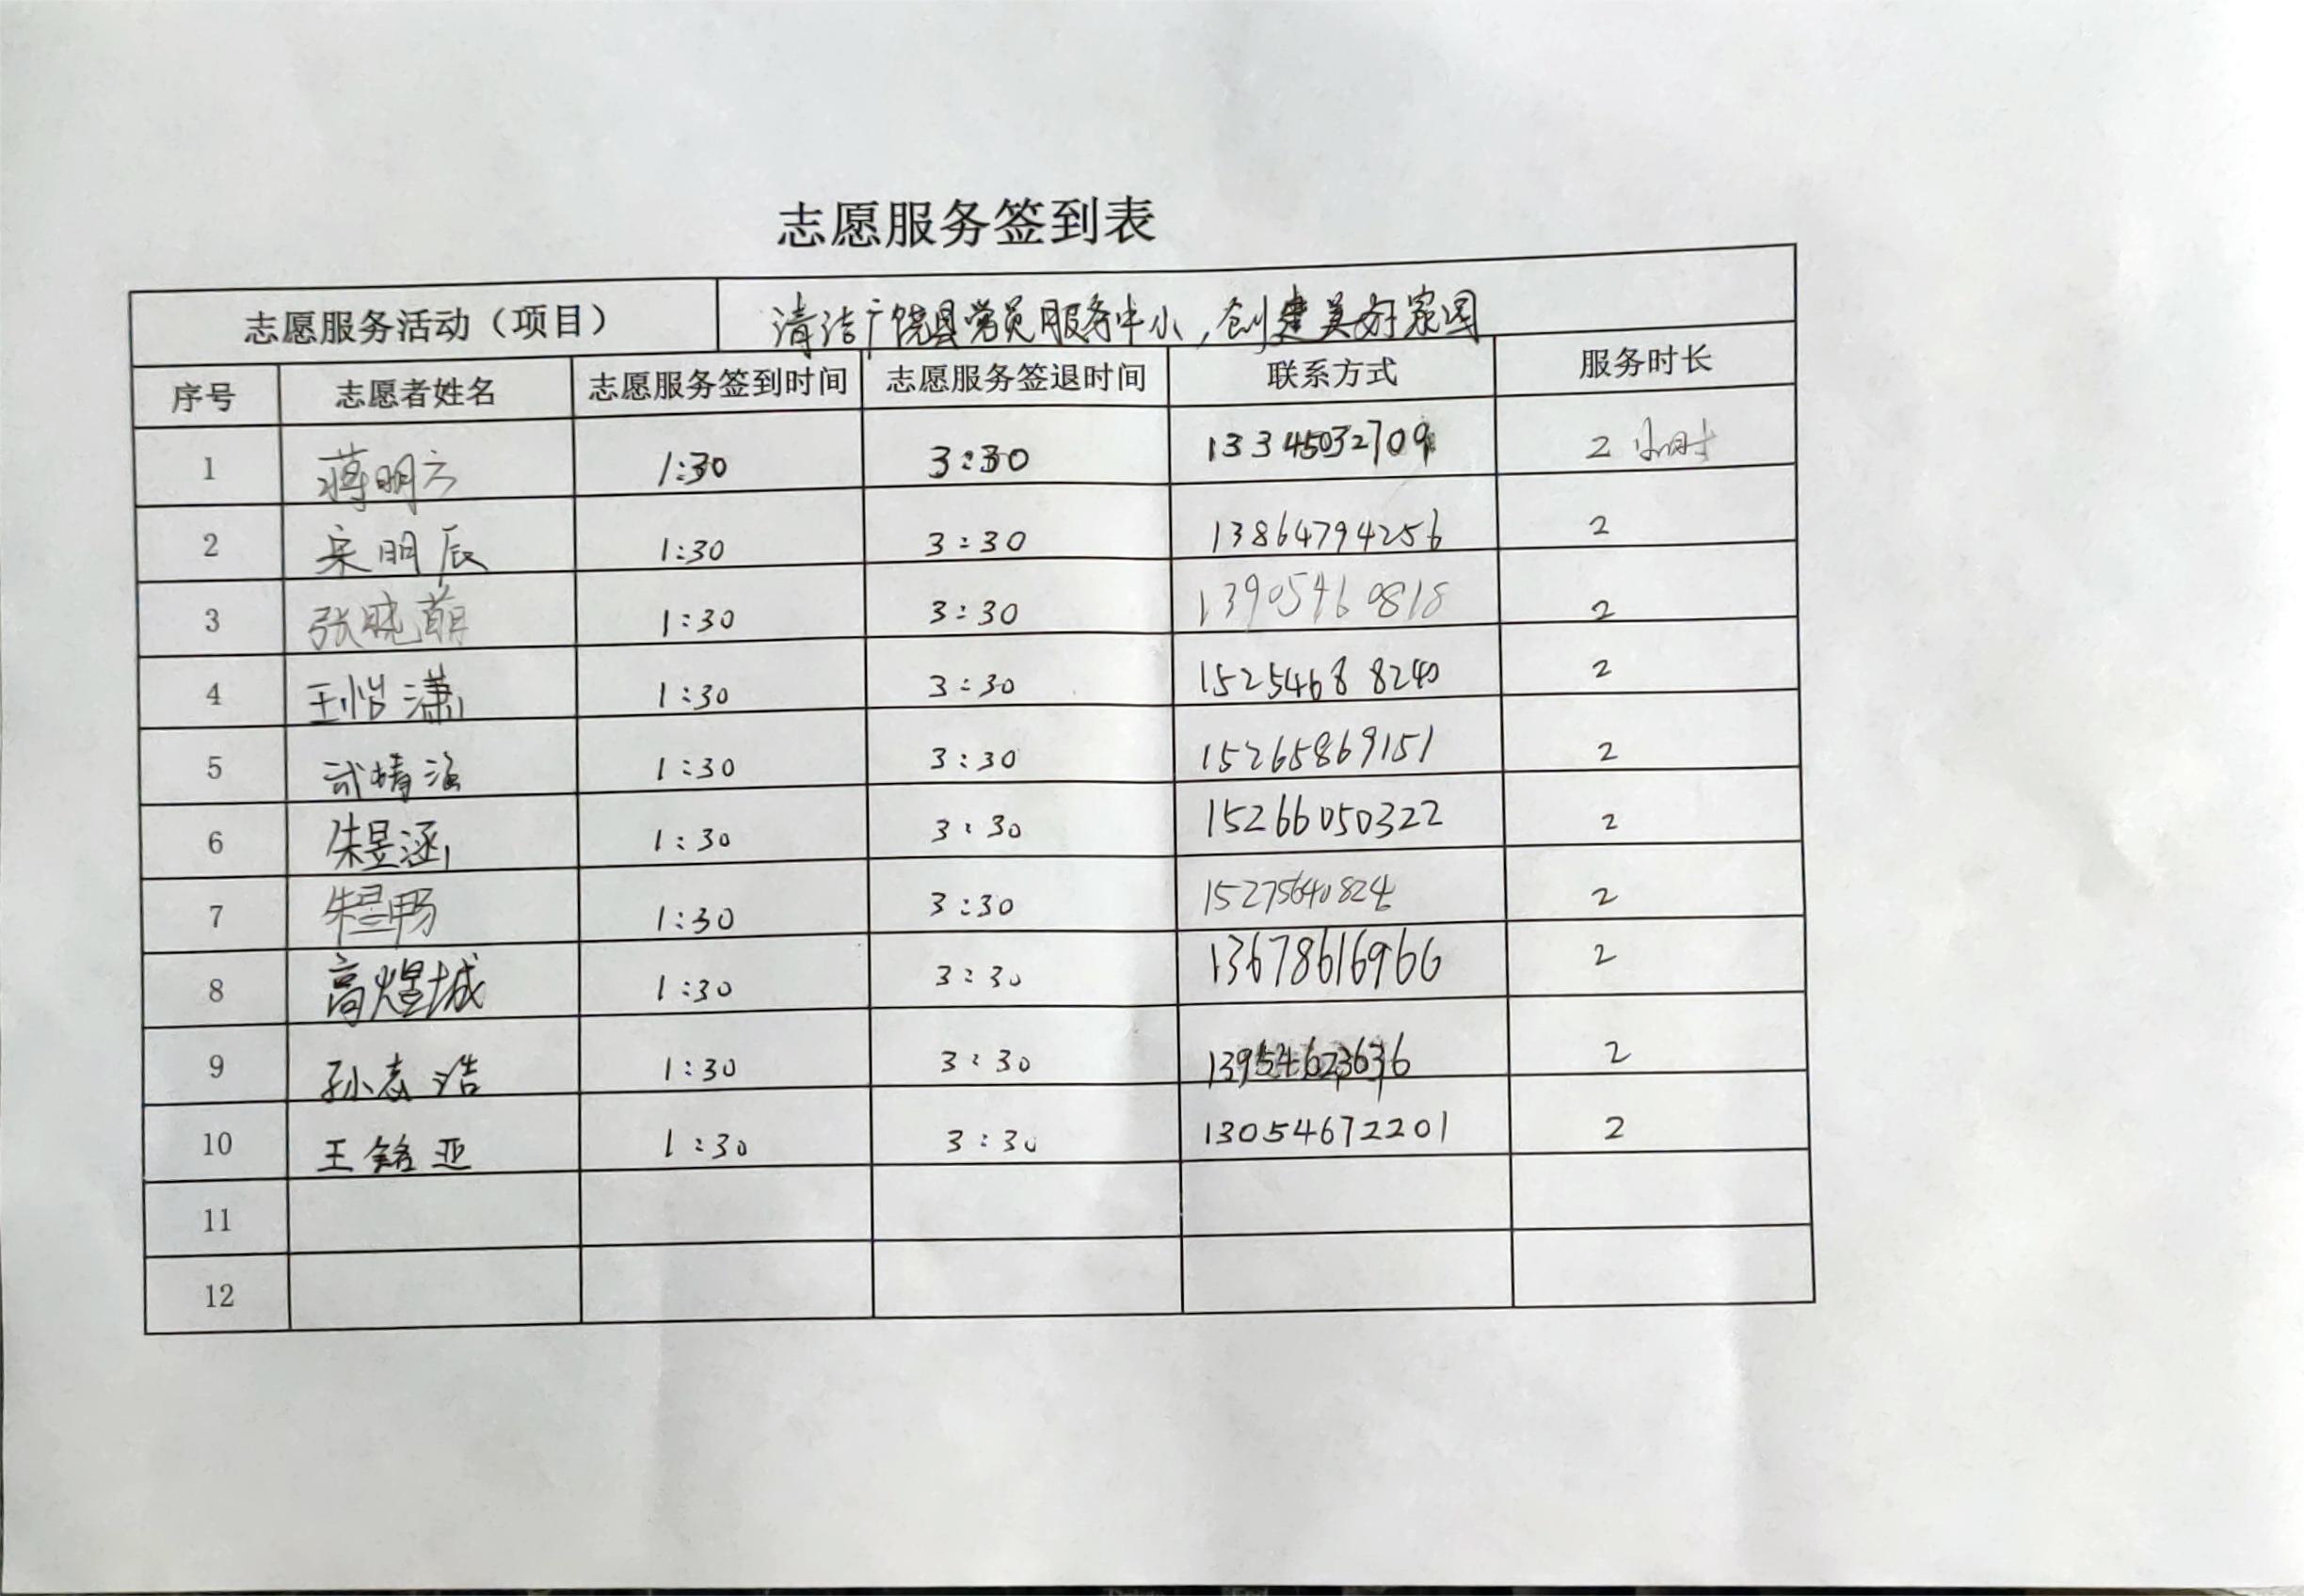 志愿服务签到表
志愿服务活动（项目） 清洁广饶县党员服务中心,创建美好家园
序号 志愿者姓名 志愿服务签到时间 志愿服务签退时间 联系方式 服务时长
1 蒋明六 1:30 3:30 13345032709 2小时
2 宋明辰 1:30 3:30 13864794256 2
3 张晓萌 1:30 3:30 13905460818 2
4 王怡潇 1:30 3:30 15254688240 2
5 武婧涵 1:30 3:30 15265869151 2
6 朱昱涵 1:30 3:30 15266050322 2
7 朱昱畅 1:30 3:30 15275640824 2
8 高煜城 1:30 3:30 13678616966 2
9 孙志浩 1:30 3:30 2
10 王铭亚 1:30 3:30 13054672201 2
11
12